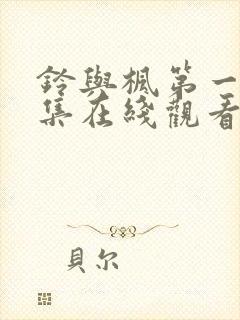 鈴與楓第一
集在綫觀看
貝尔